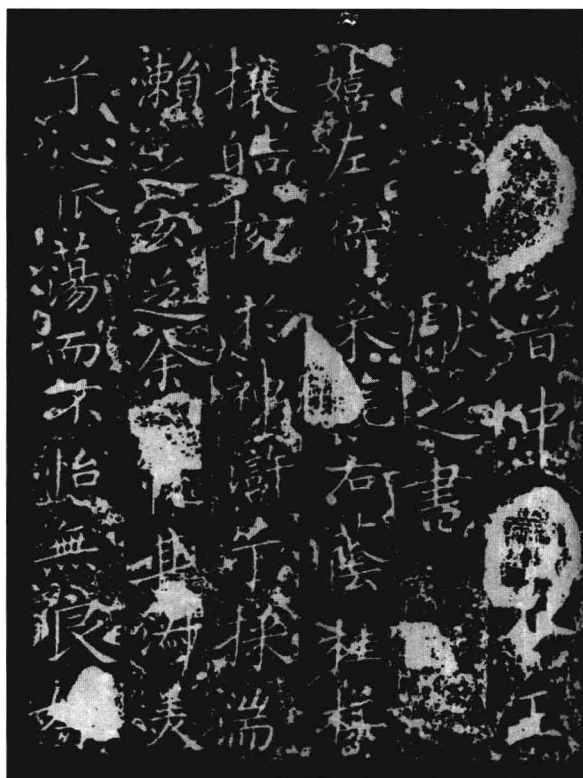 晉王
獻之書
嬉左倚采旄右蔭桂旗
攘皓捥於神滸兮採湍
瀨之玄芝余其淑美
兮心振蕩而不怡無良